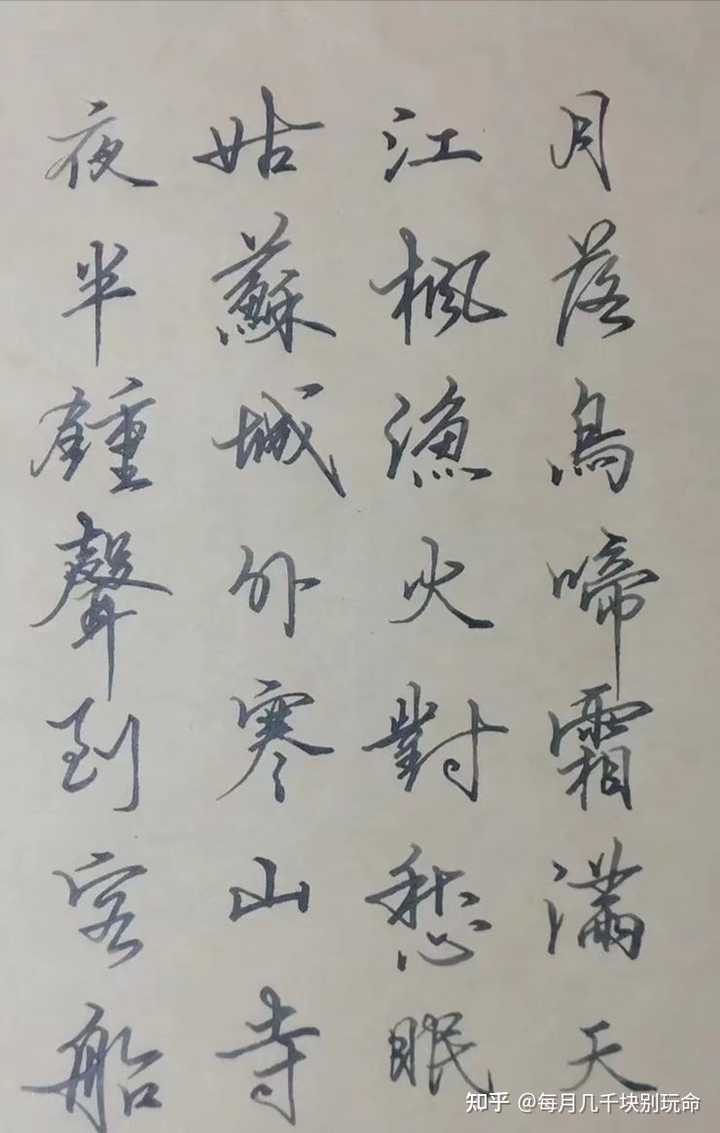 月落烏啼霜滿天
江楓漁火對愁眠
姑蘇城外寒山寺
夜半鍾聲到客船
知乎 @每月几千块别玩命